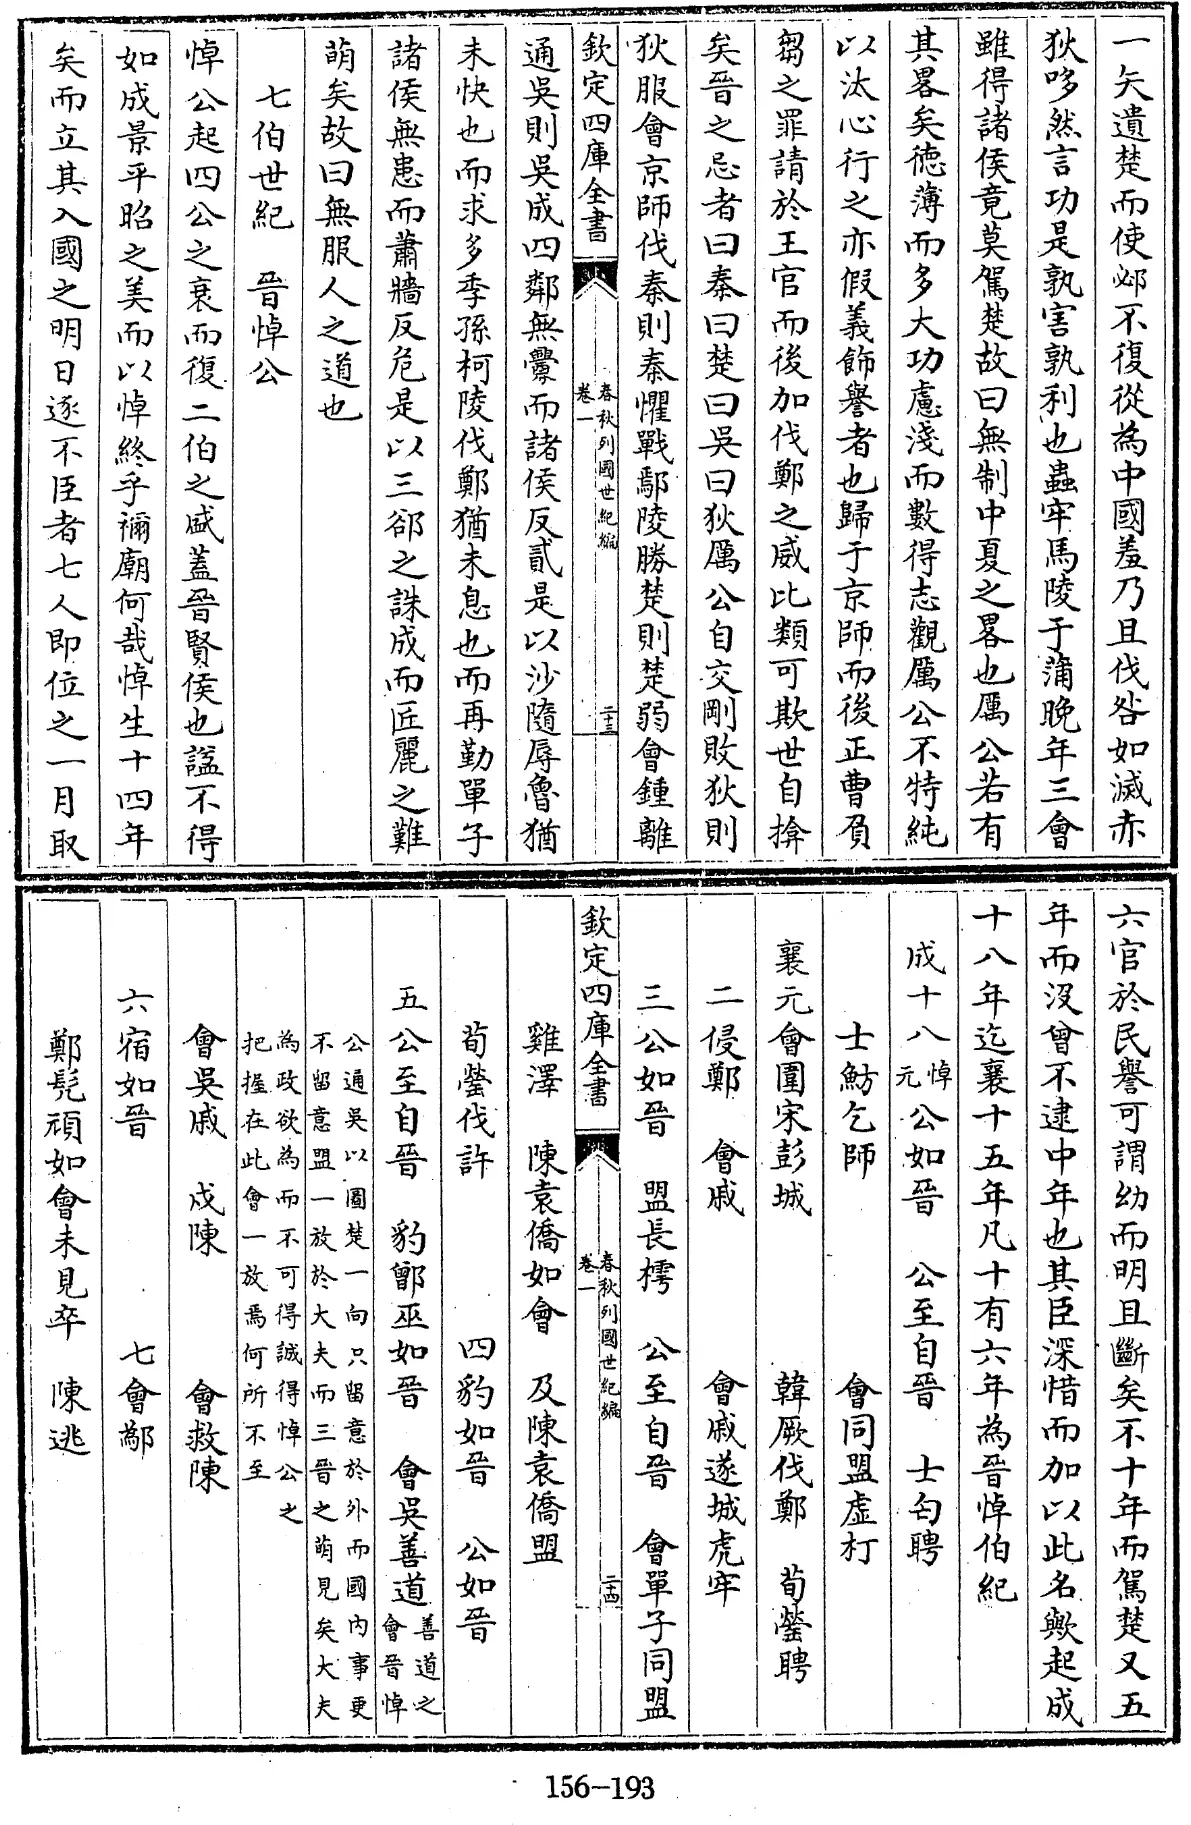 一矢遺楚而使必不復從為中國羞乃且伐咎如滅赤
狄哆然言功是孰害孰利也蟲牢馬陵于蒲晚年三會
雖得諸侯竟莫駕楚故曰無制中夏之畧也厲公若有
其畧矣德薄而多大功慮淺而數得志觀厲公不特純
以汰心行之亦假義飾譽者也歸于京師而後正曹負
芻之罪請於王官而後加伐鄭之威比類可欺世自揜
矣晉之忌者曰秦曰楚曰吳曰狄厲公自交剛敗狄則
狄服會京師伐秦則秦懼戰鄢陵勝楚則楚弱會鍾離
欽定四庫全書
春秋列國世紀編
卷一
二十三
通吳則吳成四鄰無釁而諸侯反貳是以沙隨辱魯猶
未快也而求多季孫柯陵伐鄭猶未息也而再勤單子
諸侯無患而蕭牆反危是以三郤之誅成而匠麗之難
萌矣故曰無服人之道也
七伯世紀 晉悼公
悼公起四公之衰而復二伯之盛蓋晉賢侯也諡不得
如成景平昭之美而以悼終乎禰廟何哉悼生十四年
矣而立其入國之明日逐不臣者七人即位之一月取
六官於民譽可謂幼而明且斷矣不十年而駕楚又五
年而沒曾不逮中年也其臣深惜而加以此名歟起成
十八年迄襄十五年凡十有六年為晉悼伯紀
成十八悼元公如晉 公至自晉 士匄聘
士魴乞師 會同盟虛朾
襄元會圍宋彭城 韓厥伐鄭 荀罃聘
二侵鄭 會戚 會戚遂城虎牢
三公如晉 盟長樗 公至自晉 會單子同盟
欽定四庫全書
春秋列國世紀編
卷一
二十四
雞澤 陳袁僑如會 及陳袁僑盟
荀罃伐許 四豹如晉 公如晉
五公至自晉 豹鄫巫如晉 會吳善道善道之會晉悼
公通吳以圖楚一向只留意於外而國內事更
不留意盟一放於大夫而三晉之萌見矣大夫
為政欲為而不可得誠得悼公之
把握在此會一放焉何所不至
會吳戚 戍陳 會救陳
六宿如晉 七會鄬
鄭髡頑如會未見卒 陳逃
156-193